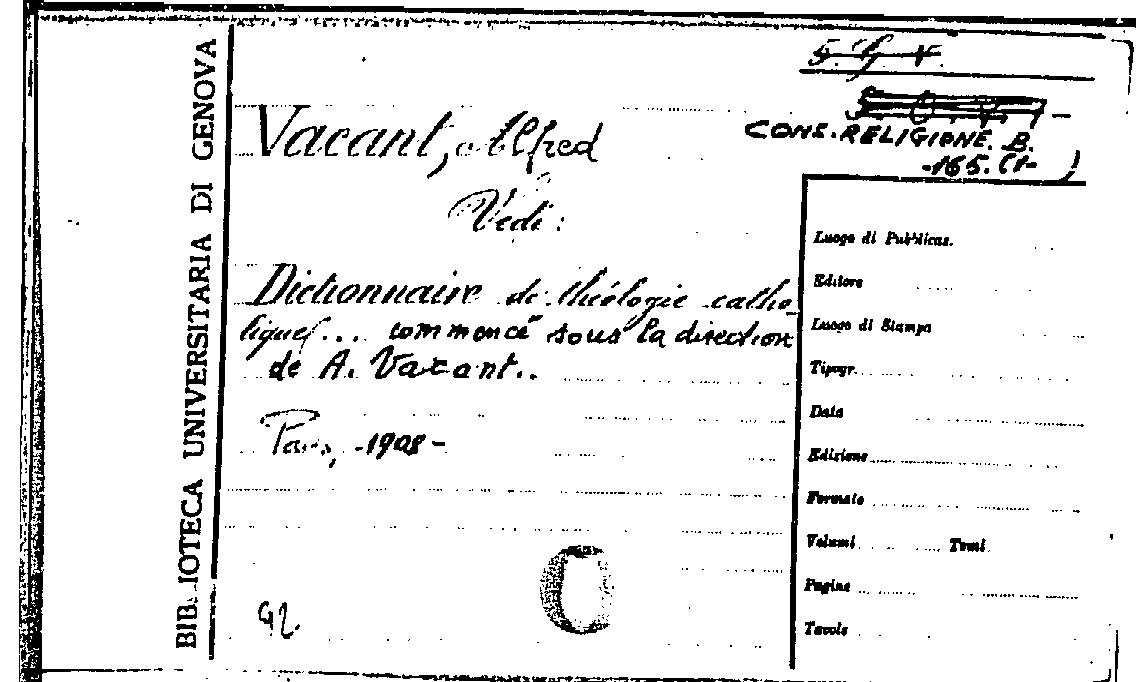 BIBLIOTECA UNIVERSITARIA DI GENOVA
CONS. RELIGIONE. B.
-165.(1- )
Vacant, Alfred
Vedi:
Dictionnaire de théologie catho-
lique... commencé sous la direction
de A. Vacant..
Paris, -1908-
C
Luogo di Pubblicaz.
Editore
Luogo di Stampa
Tipogr.
Data
Edizione
Formato
Volumi Tomi
Pagine
Tavole